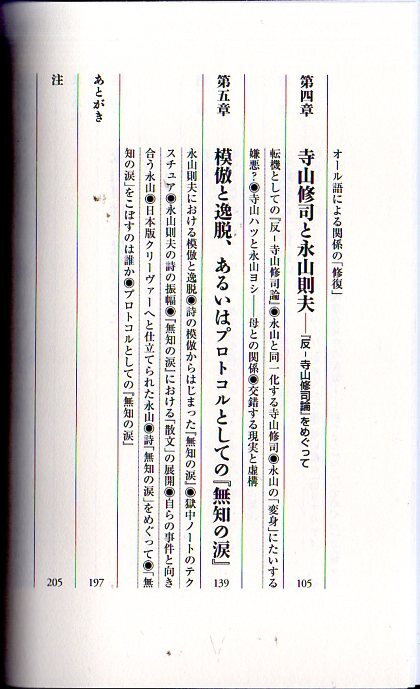 オール語による関係の「修復」
第四章　寺山修司と永山則夫――『反－寺山修司論』をめぐって　105
転機としての『反－寺山修司論』●永山と同一化する寺山修司●永山の「変身」にたいする
嫌悪?●寺山ハツと永山ヨシ――母との関係●交錯する現実と虚構
第五章　模倣と逸脱、あるいはプロトコルとしての『無知の涙』　139
永山則夫における模倣と逸脱●詩の模倣からはじまった『無知の涙』●獄中ノートのテク
スチュア●永山則夫の詩の振幅●『無知の涙』における「散文」の展開●自らの事件と向き
合う永山●日本版クリーヴァーへと仕立てられた永山●詩「無知の涙」をめぐって●「無
知の涙」をこぼすのは誰か●プロトコルとしての『無知の涙』
あとがき　197
注　205